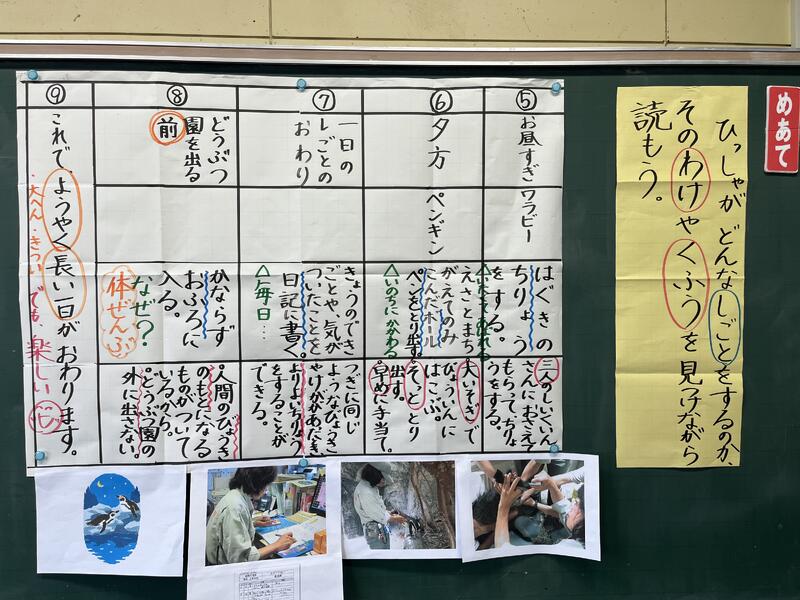 めあて
ひっしゃが どんなしごとをするのか、
そのわけやくふうを見つけながら
読もう。
⑤
お昼すぎ
ワラビー
はぐきの
ちりょう
をする。
△いたくてあばれる
三人のしいくいん
さんにおさえて
もらって、ちりょ
うをする。
⑥
夕方
ペンギン
えさとまち
がえてのみ
こんだボール
ペンをとり出す
△いのちにかかわる
大いそぎで
びょういんに
はこぶ。
そっととり
出す。
早めに手当て。
⑦
一日の
しごとの
おわり
きょうのでき
ごとや、気が
ついたことを
日記に書く。
△毎日…
つぎに同じ
ようなびょうき
やけががあったとき、
よりよいちりょう
をすることが
できる。
⑧
どうぶつ
園を出る
前
かならず
おふろに
入る。
なぜ?
体ぜんぶ
人間のびょうき
のもとになる
ものがついて
いるから。
どうぶつ園の
外に出さない。
⑨
これで、ようやく長い一日がおわります。
・大へん・きつい でも、楽しい